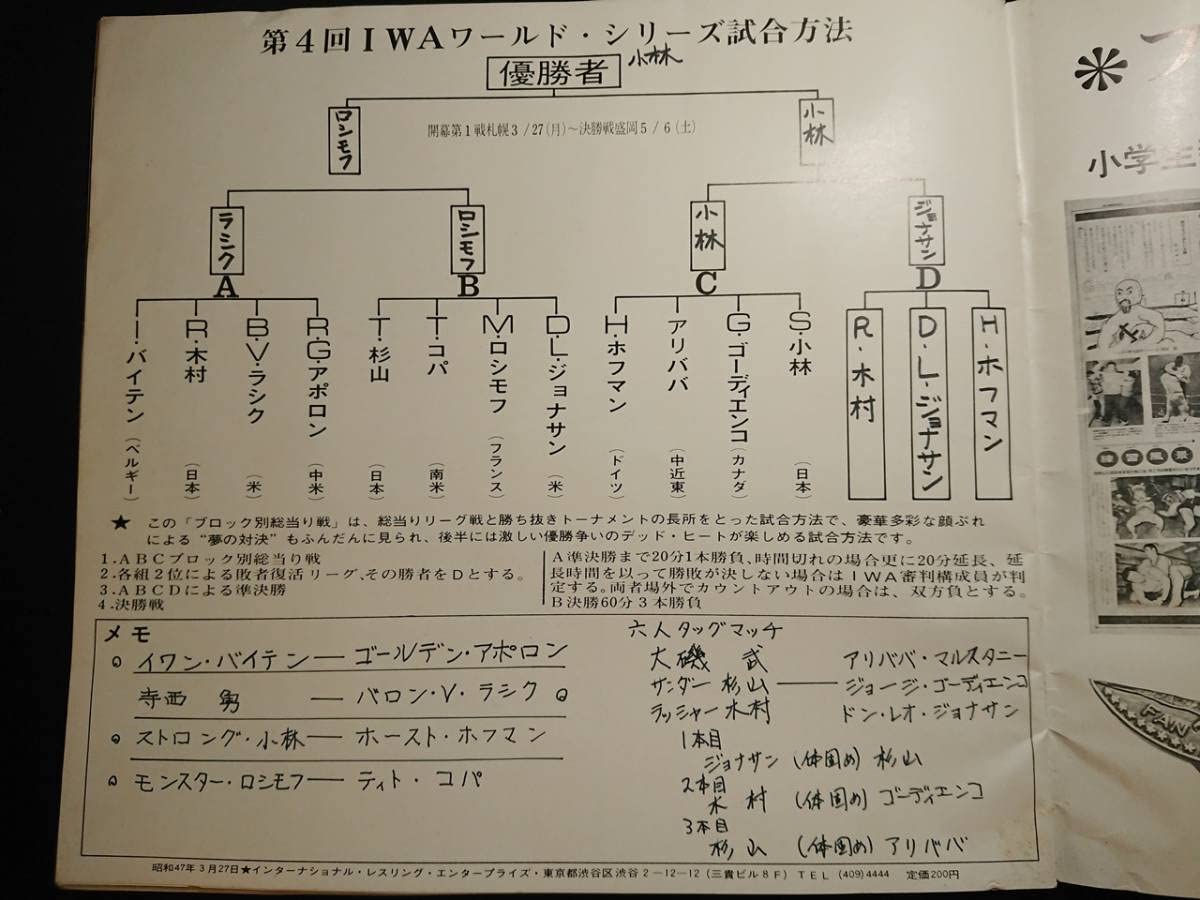 第4回IWAワールド・シリーズ試合方法
優勝者 小林
ロシモフ
開幕第1戦札幌3/27(月)〜決勝戦盛岡5/6(土)
小林
ラシク
ロシモフ
小林
ジョナサン
A
B
C
D
I・バイテン(ベルギー)
R・木村(日本)
B・V・ラシク(米)
R・G・アポロン(中米)
T・杉山(日本)
T・コパ(南米)
M・ロシモフ(フランス)
D・L・ジョナサン(米)
H・ホフマン(ドイツ)
アリババ(中近東)
G・ゴーディエンコ(カナダ)
S・小林(日本)
R・木村
D・L・ジョナサン
H・ホフマン
★ この「ブロック別総当り戦」は、総当りリーグ戦と勝ち抜きトーナメントの長所をとった試合方法で、豪華多彩な顔ぶれ
による“夢の対決”もふんだんに見られ、後半には激しい優勝争いのデッド・ヒートが楽しめる試合方法です。
1.ABCブロック別総当り戦
2.各組2位による敗者復活リーグ、その勝者をDとする。
3.ABCDによる準決勝
4.決勝戦
A準決勝まで20分1本勝負、時間切れの場合更に20分延長、延
長時間を以って勝敗が決しない場合はIWA審判構成員が判
定する。両者場外でカウントアウトの場合は、双方負とする。
B決勝60分3本勝負
メモ
○ イワン・バイテン — ゴールデン・アポロン
寺西 勇 — バロン・V・ラシク ○
○ ストロング・小林 — ホースト・ホフマン
○ モンスター・ロシモフ — ティト・コパ
六人タッグマッチ
大磯 武 アリババ・マルスタニー
サンダー杉山 — ジョージ・ゴーディエンコ
ラッシャー木村 ドン・レオ・ジョナサン
1本目
ジョナサン (体固め) 杉山
2本目
木村 (体固め) ゴーディエンコ
3本目
杉山 (体固め) アリババ
昭和47年3月27日★インターナショナル・レスリング・エンタープライズ・東京都渋谷区渋谷2-12-12(三貴ビル8F) TEL (409)4444 定価200円
小学生
FAN